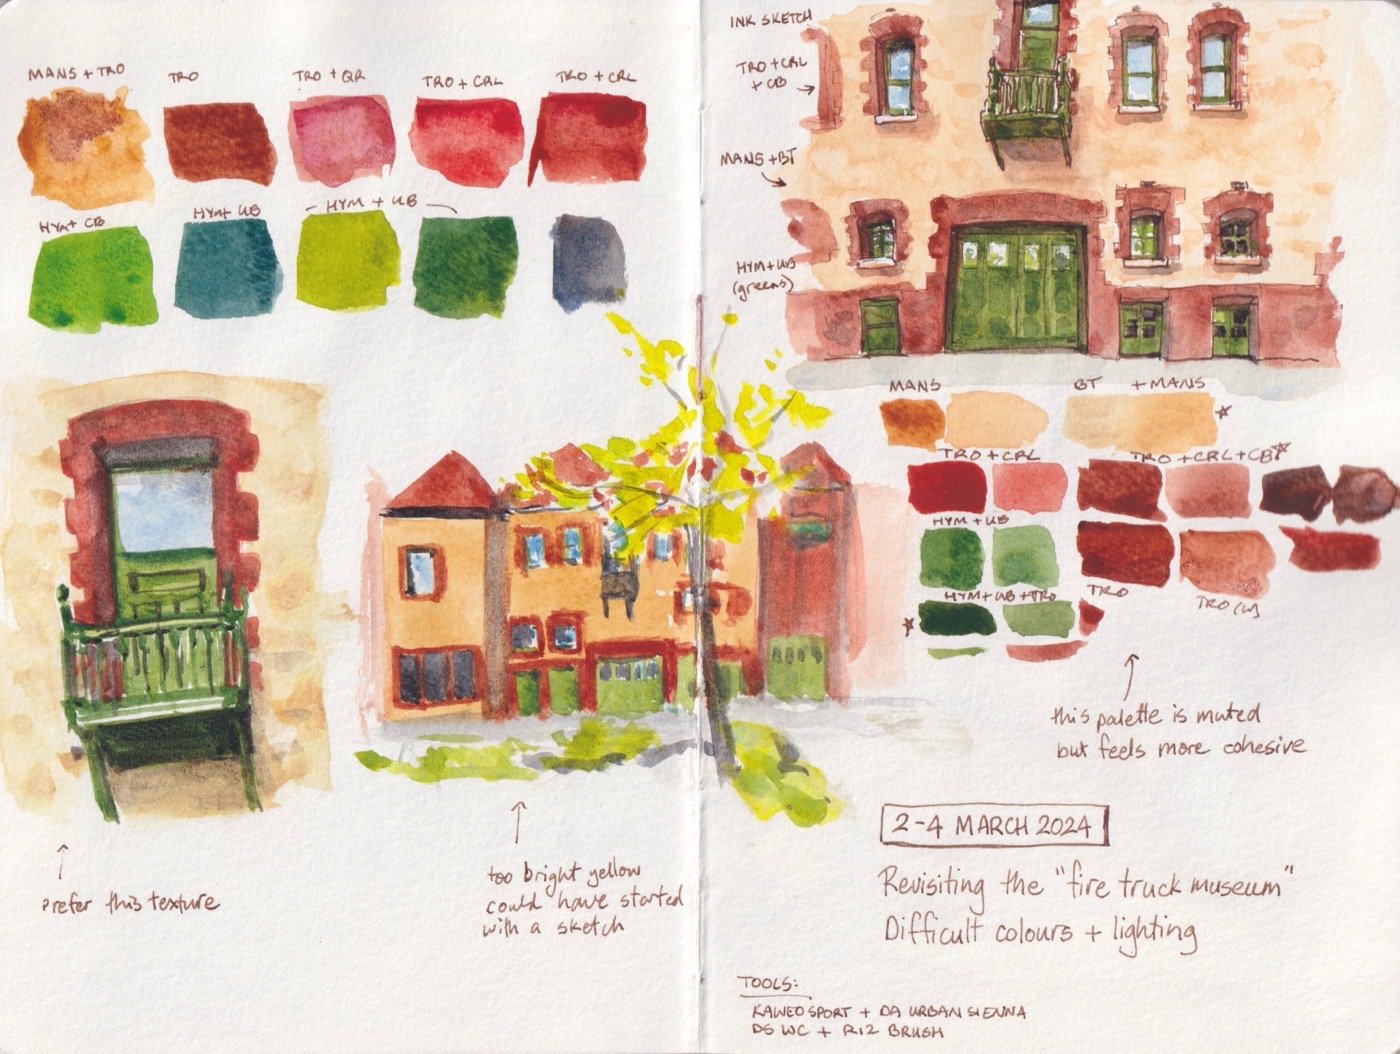 MANS + TRO
TRO
TRO + QR
TRO + CRL
TRO + CRL
HYM + CB
HYM + UB
- HYM + UB
prefer this texture
too bright yellow
could have started
with a sketch
INK SKETCH
TRO + CRL
+ CB
MANS + BT
HYM + UB
(greens)
MANS
BT + MANS
TRO + CRL
TRO + CRL + CB
HYM + UB
HYM + UB + TRO
TRO
TRO (W)
this palette is muted
but feels more cohesive
2-4 MARCH 2024
Revisiting the "fire truck museum"
Difficult colours + lighting
TOOLS:
KAWECO SPORT + DA URBAN SIENNA
DS WC + R12 BRUSH